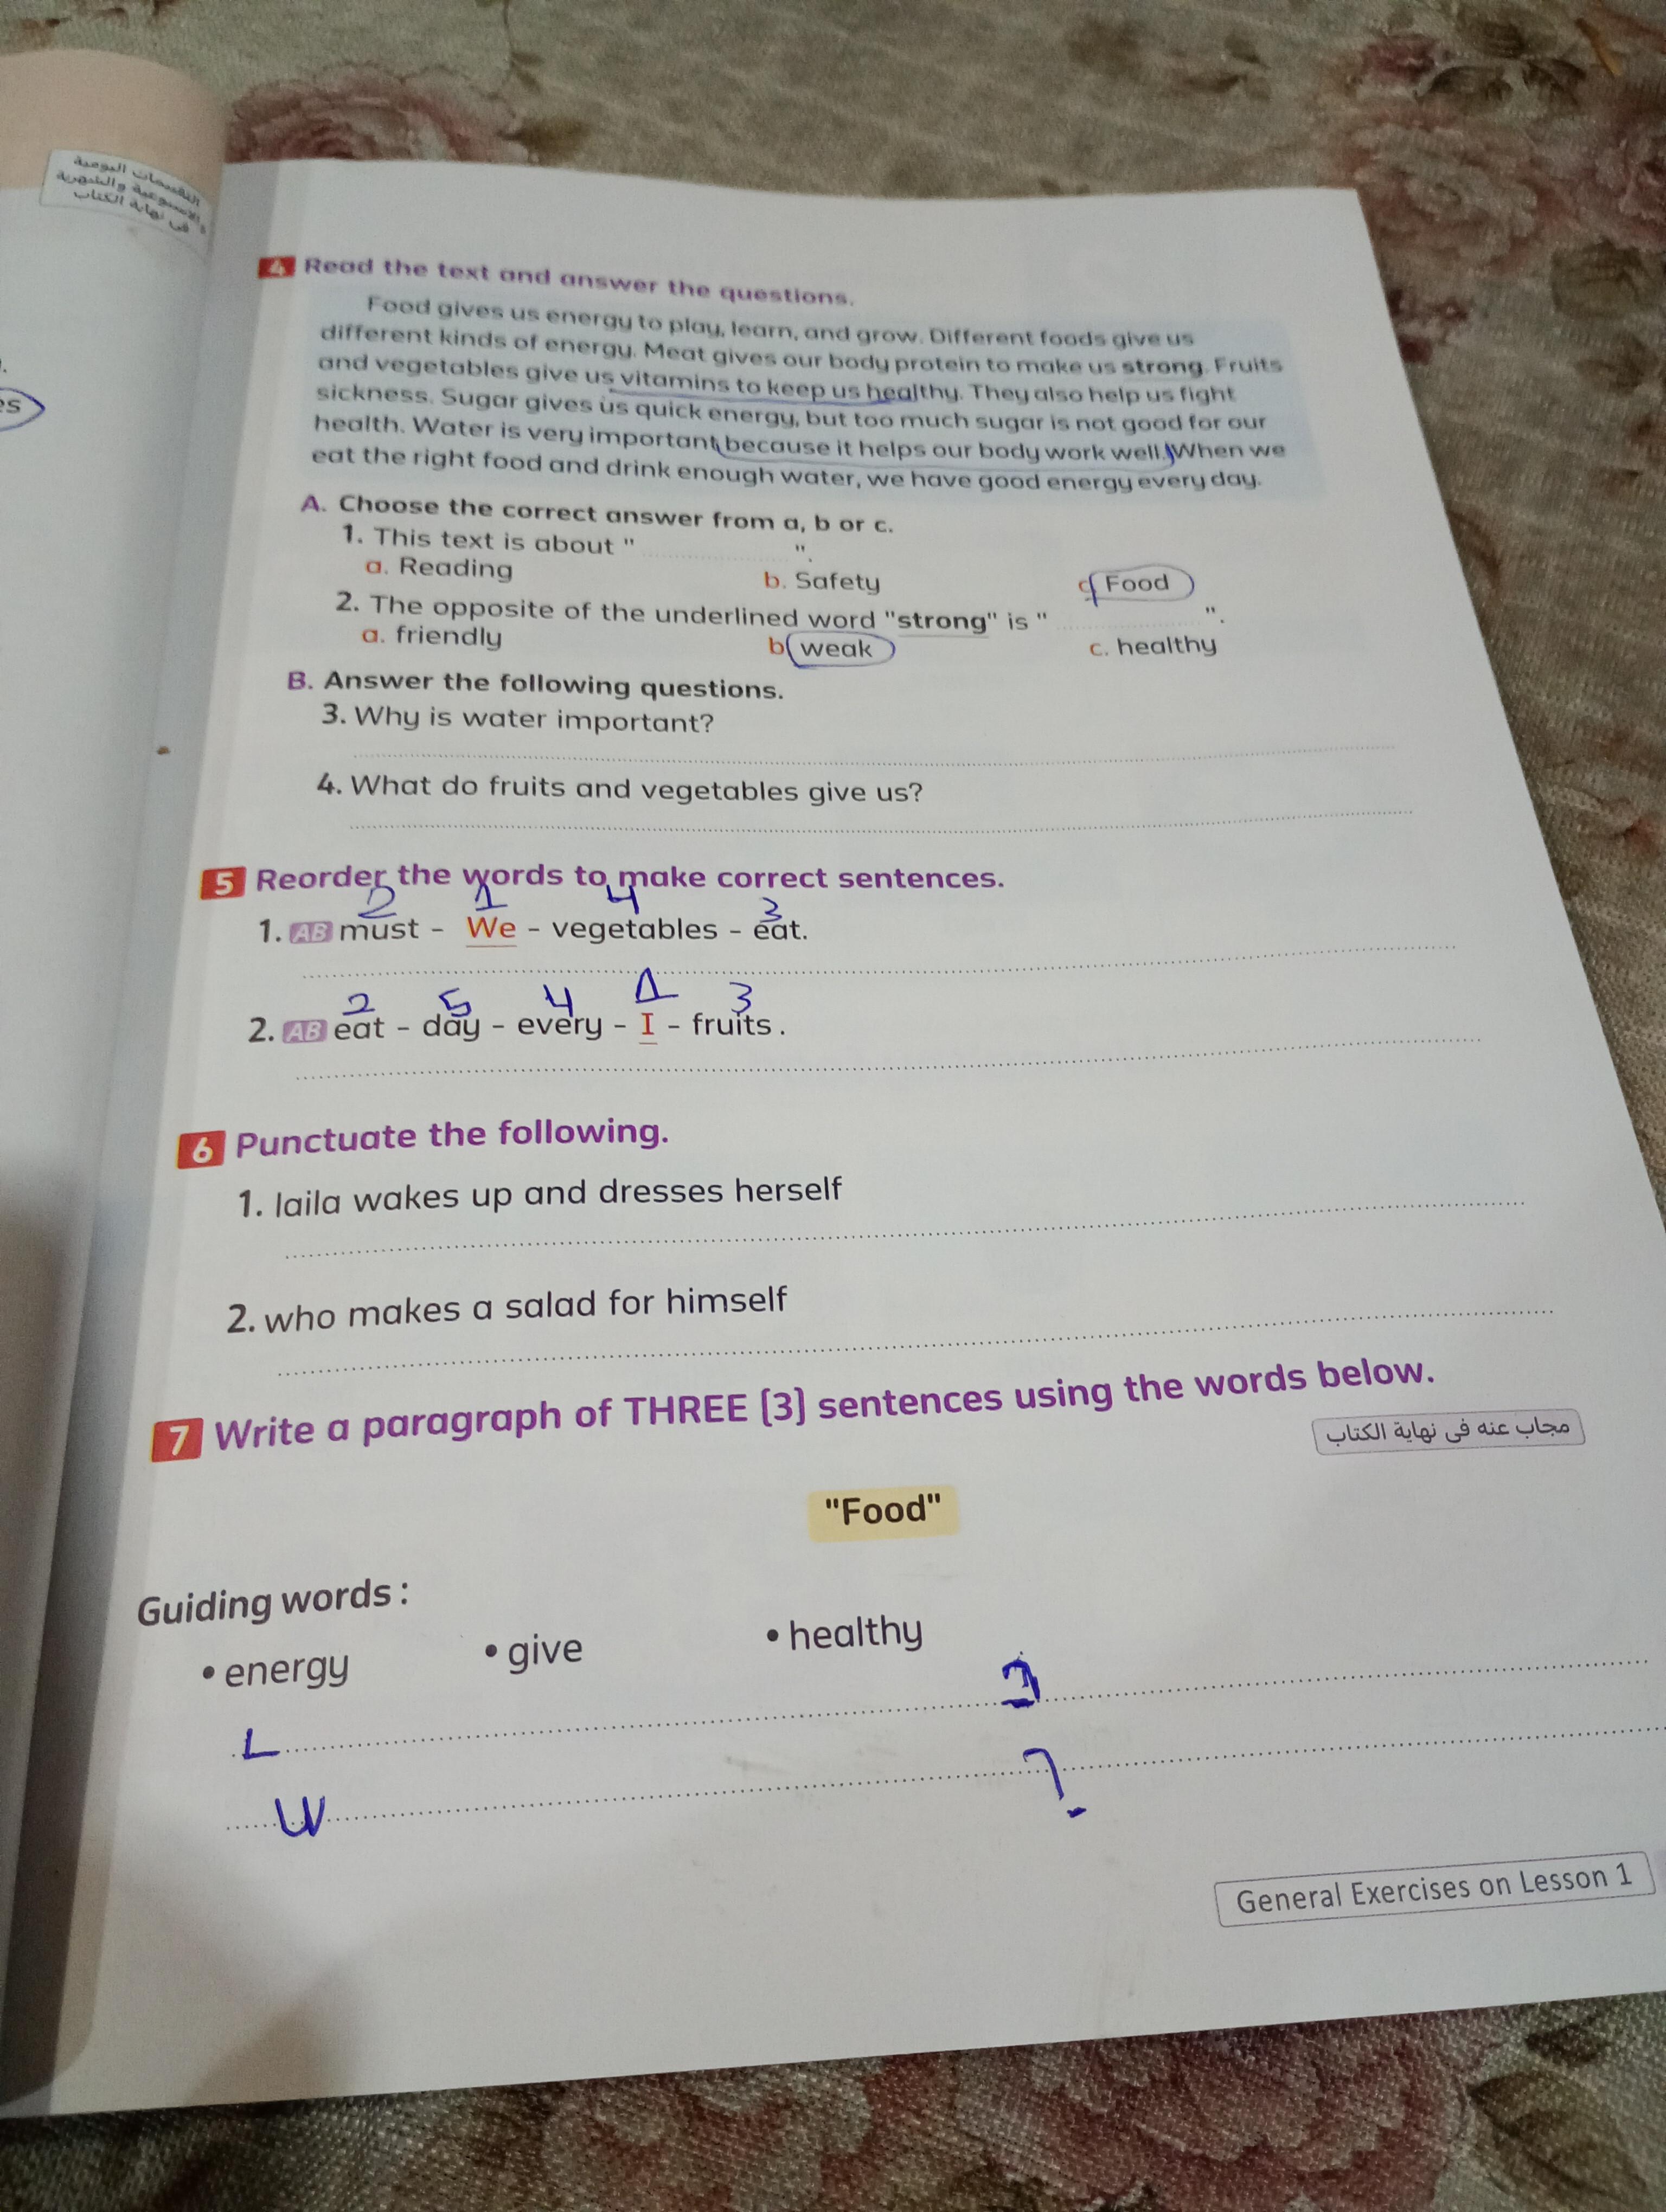 التقييمات اليومية
والأسبوعية والشهرية
فى نهاية الكتاب
es
4 Read the text and answer the questions.
Food gives us energy to play, learn, and grow. Different foods give us
different kinds of energy. Meat gives our body protein to make us strong. Fruits
and vegetables give us vitamins to keep us healthy. They also help us fight
sickness. Sugar gives us quick energy, but too much sugar is not good for our
health. Water is very important because it helps our body work well. When we
eat the right food and drink enough water, we have good energy every day.
A. Choose the correct answer from a, b or c.
1. This text is about " ".
a. Reading b. Safety c. Food
2. The opposite of the underlined word "strong" is " ".
a. friendly b. weak c. healthy
B. Answer the following questions.
3. Why is water important?
4. What do fruits and vegetables give us?
5 Reorder the words to make correct sentences.
2 1 4 3
1. AB must - We - vegetables - eat.
2 5 4 1 3
2. AB eat - day - every - I - fruits .
6 Punctuate the following.
1. laila wakes up and dresses herself
2. who makes a salad for himself
7 Write a paragraph of THREE (3) sentences using the words below.
مجاب عنه فى نهاية الكتاب
"Food"
Guiding words :
• energy • give • healthy
L
W ?
General Exercises on Lesson 1